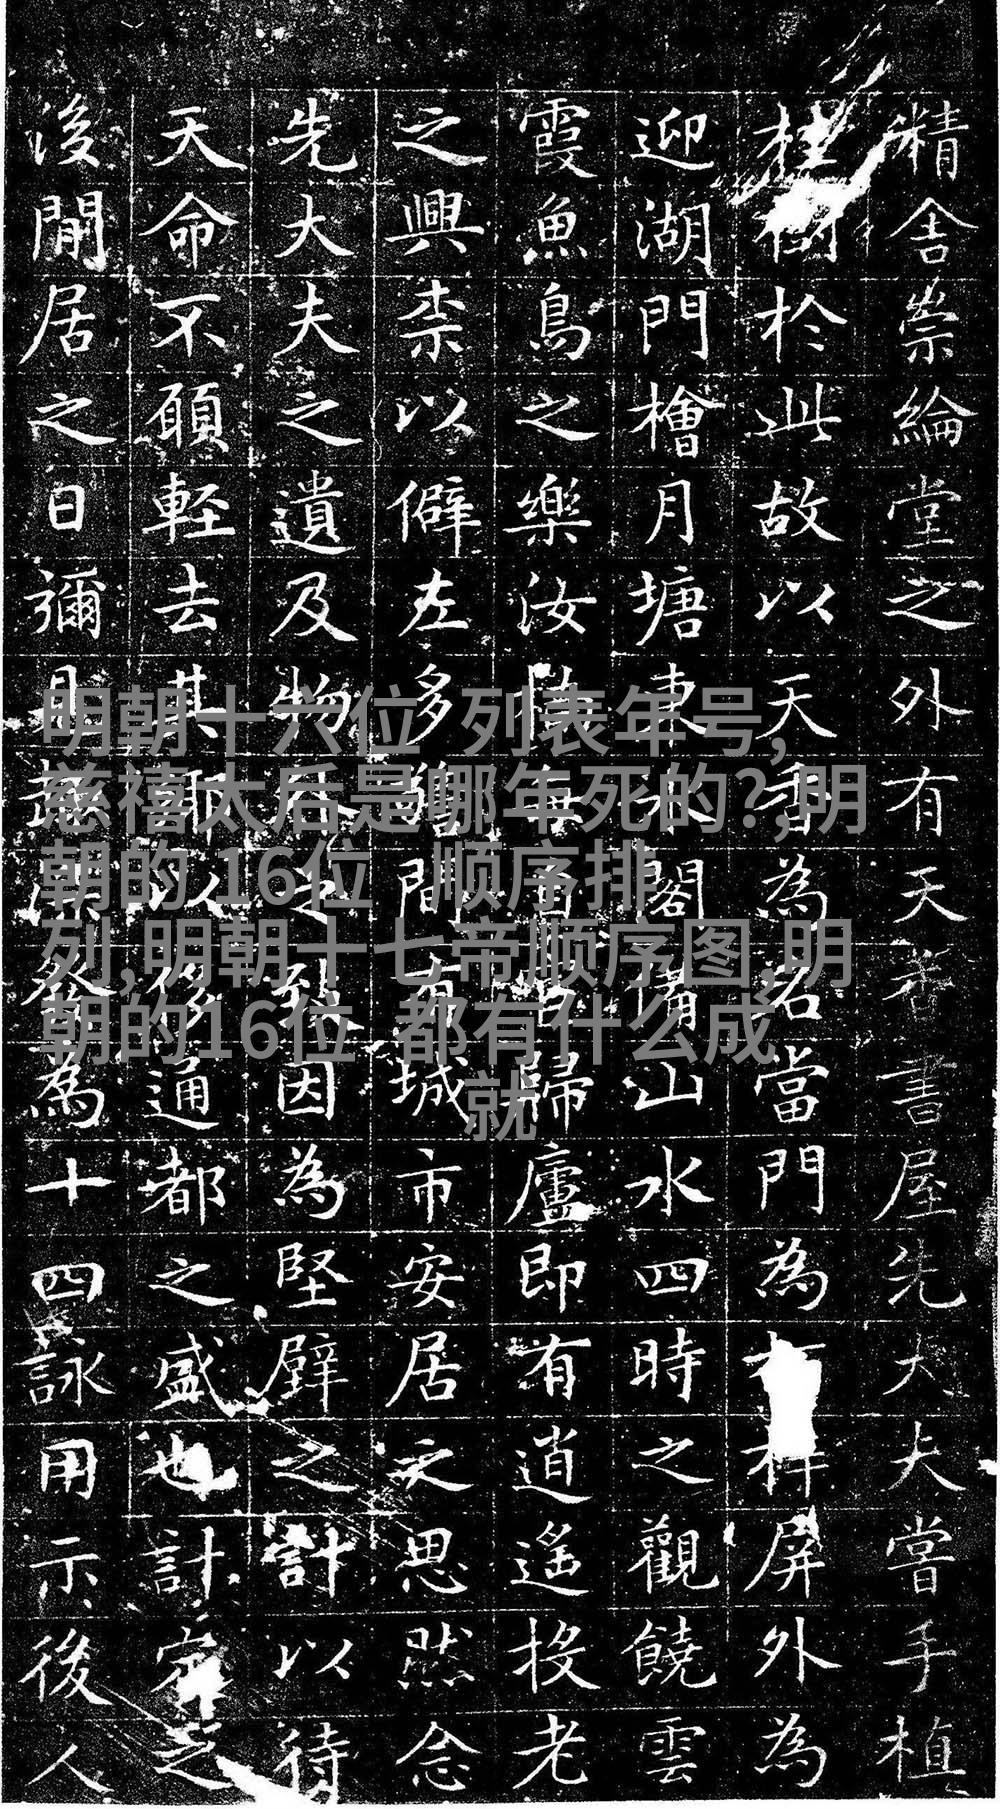 精舍崇綸堂之外有天香書屋先大夫嘗手植
桂樹於此故以天香為名當門為屏外為
迎湖門檜月塘東水閣備山水四時之觀饒雲
霞魚鳥之樂汝歸廬即有逍遙投老
之興柰以僻左多間布城市安居之思然念
先大夫之遺及物因為堅壁之計以待
天命不願輕去其通都之盛也計之
後閒居之日彌為十四詠用示後人
明朝十六位 列表年号,
慈禧太后是哪年死的?,明
朝的 16位 顺序排
列,明朝十七帝顺序图,明
朝的16位 都有什么成
就